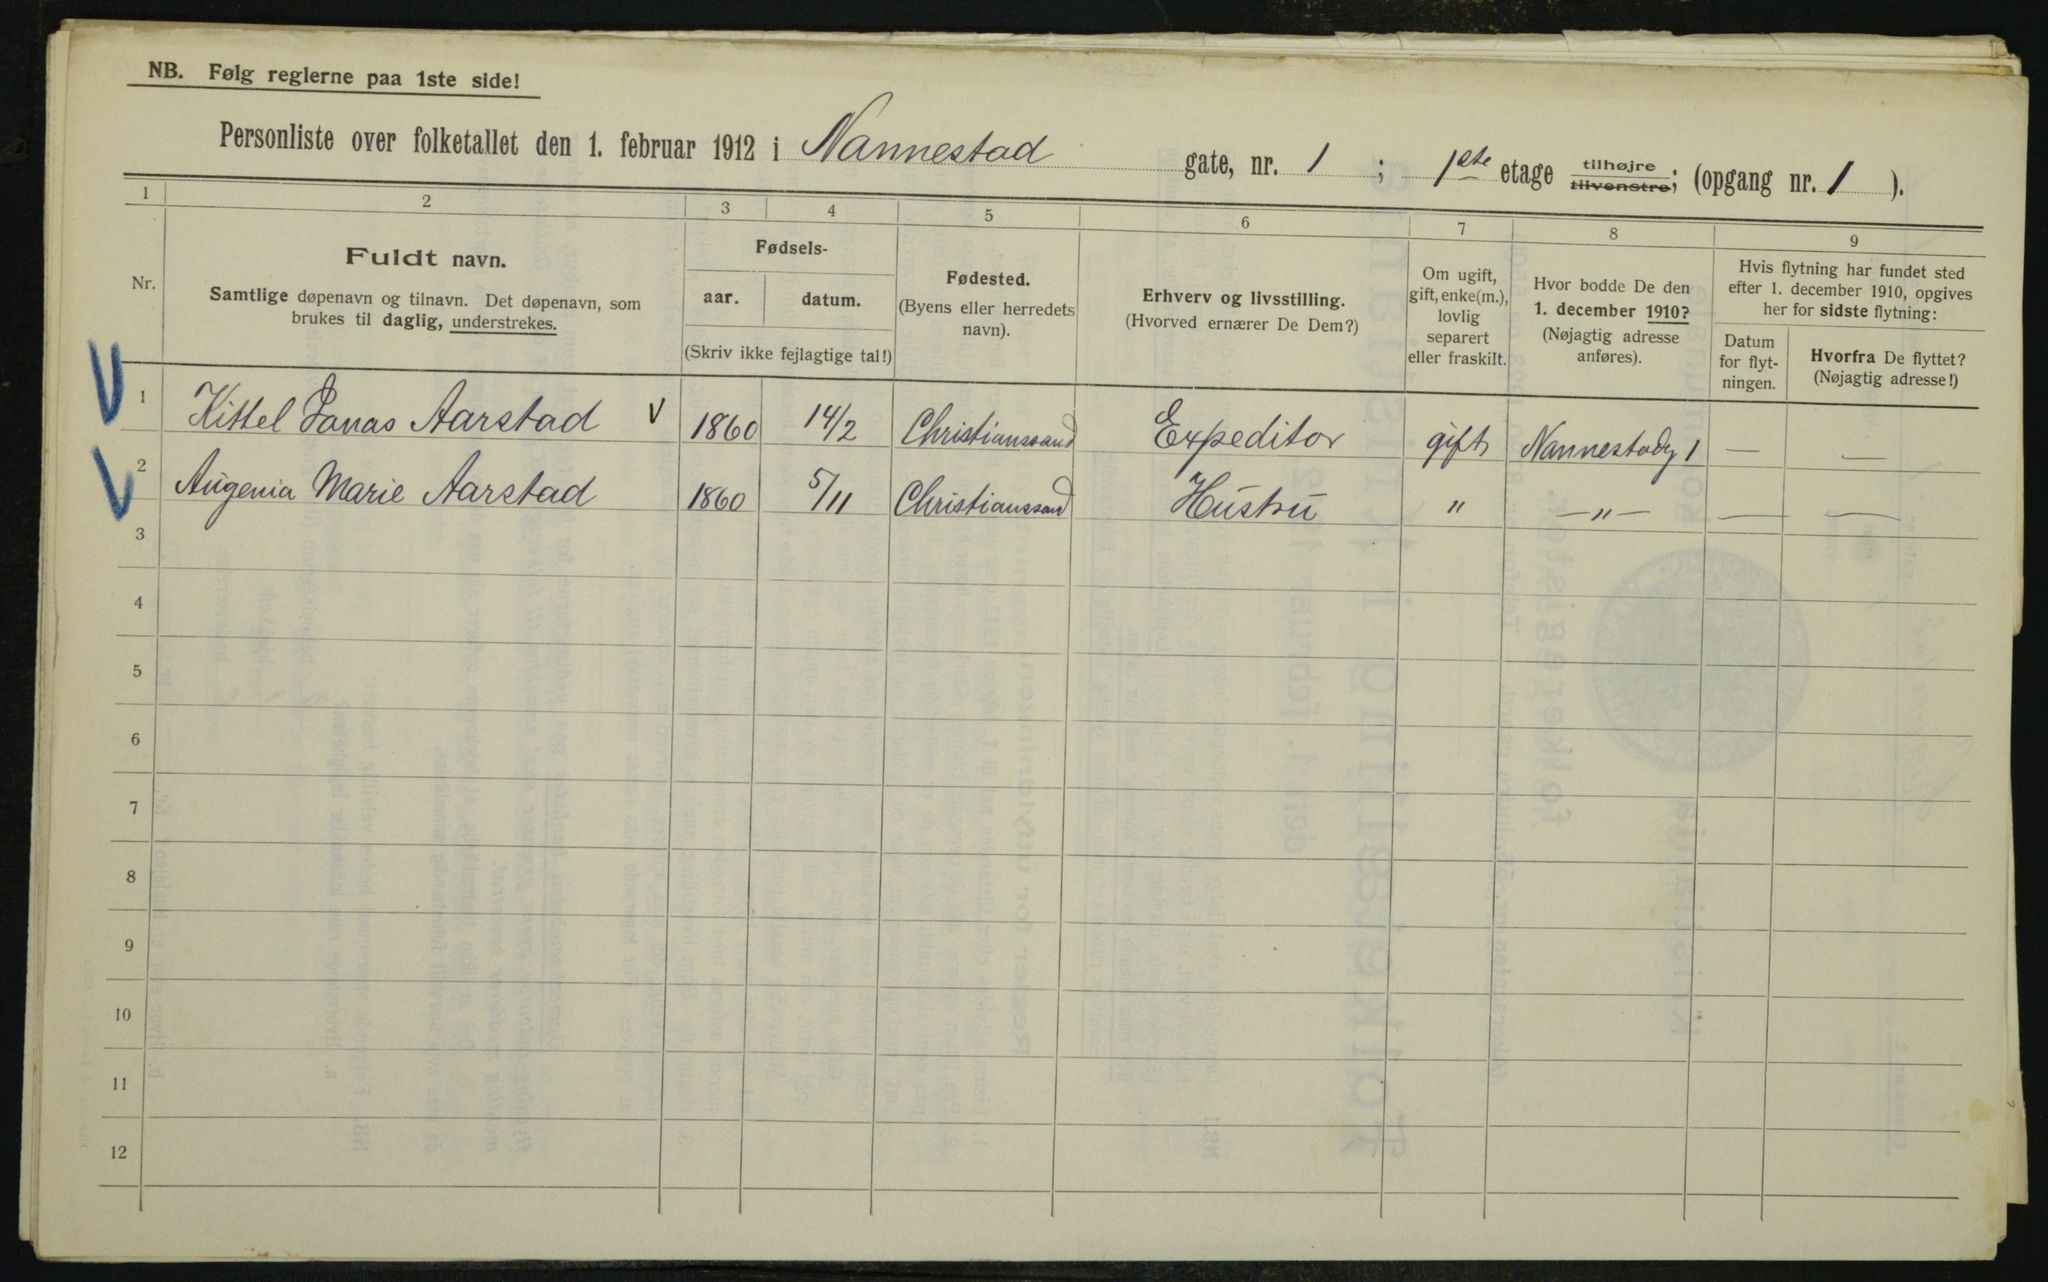 NB. Følg reglerne paa 1ste side!
Personliste over folketallet den 1. februar 1912 i Nannestad gate, nr. 1 ; 1ste etage tilhøjre tilvenstre; (opgang nr. 1 ).
1 2 3 4 5 6 7 8 9
Nr.
Fuldt navn.
Samtlige døpenavn og tilnavn. Det døpenavn, som
brukes til daglig, understrekes.
Fødsels-
aar. datum.
(Skriv ikke fejlagtige tal!)
Fødested.
(Byens eller herredets
navn).
Erhverv og livsstilling.
(Hvorved ernærer De Dem?)
Om ugift,
gift, enke(m.),
lovlig
separert
eller fraskilt.
Hvor bodde De den
1. december 1910?
(Nøjagtig adresse
anføres).
Hvis flytning har fundet sted
efter 1. december 1910, opgives
her for sidste flytning:
Datum
for flyt-
ningen.
Hvorfra De flyttet?
(Nøjagtig adresse!)
1 Kittel Jonas Aarstad V 1860 14/2 Christianssand Expeditor gift Nannestadg 1 — —
2 Augenia Marie Aarstad 1860 5/11 Christianssand Hustru " —"— — —
3
4
5
6
7
8
9
10
11
12